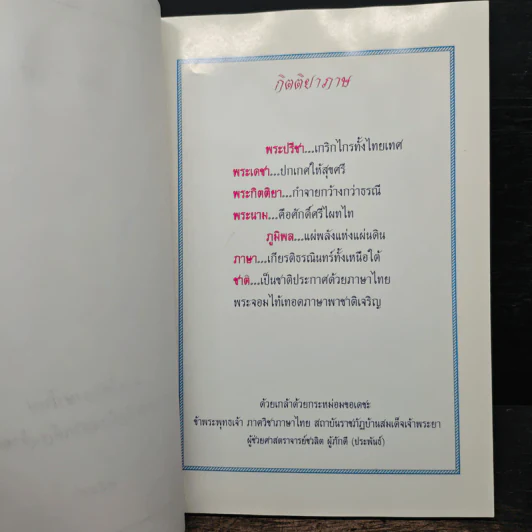 กิตติยาภาษ
พระปรีชา...เกริกไกรทั้งไทยเทศ
พระเดชา...ปกเกศให้สุขศรี
พระกิตติยา...กำจายกว้างกว่าธรณี
พระนาม...คือศักดิ์ศรีไผทไท
ภูมิพล...แผ่พลังแห่งแผ่นดิน
ภาษา...เกียรติธรณินทร์ทั้งเหนือใต้
ชาติ...เป็นชาติประกาศด้วยภาษาไทย
พระจอมไท้เทอดภาษาพาชาติเจริญ
ด้วยเกล้าด้วยกระหม่อมขอเดชะ
ข้าพระพุทธเจ้า ภาควิชาภาษาไทย สถาบันราชภัฏบ้านสมเด็จเจ้าพระยา
ผู้ช่วยศาสตราจารย์ชวลิต ผู้ภักดี (ประพันธ์)